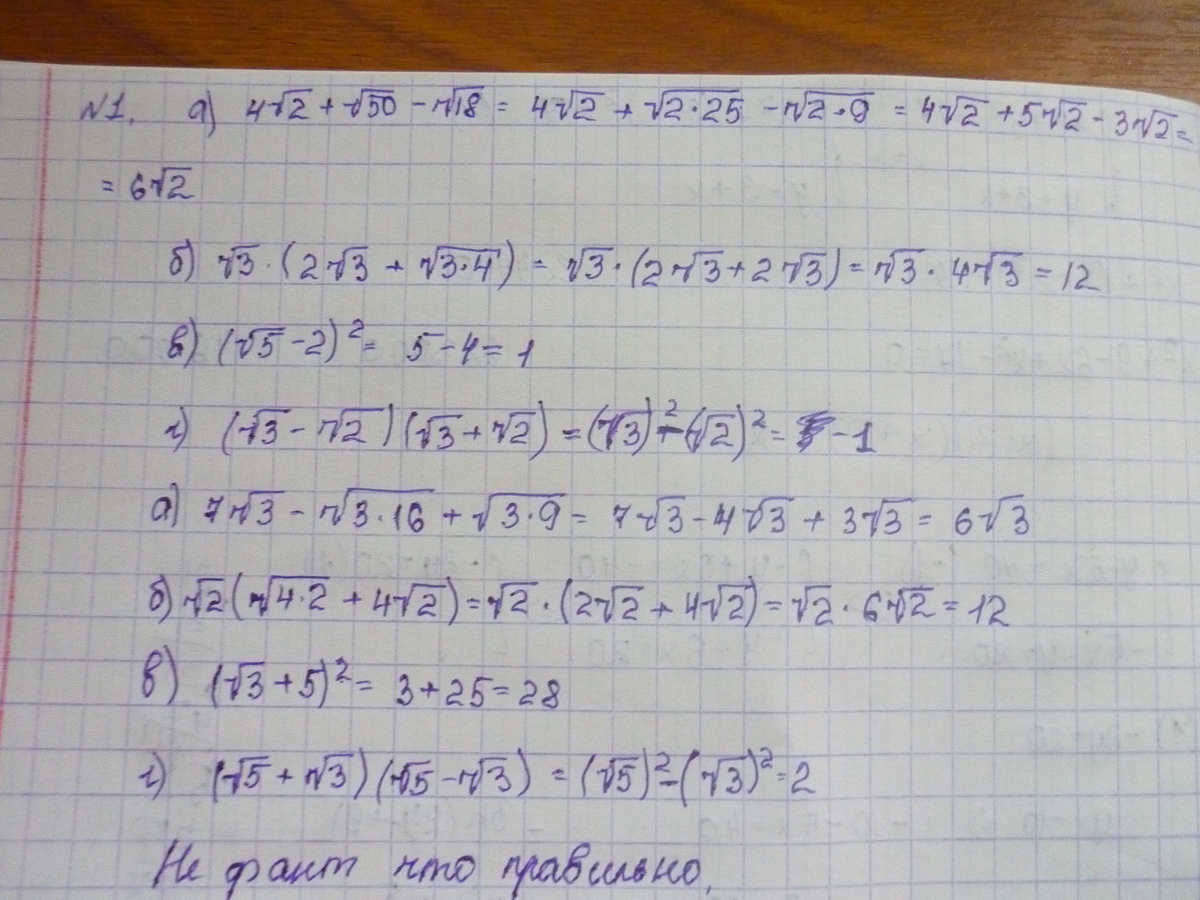 №1. а) 4√2 + √50 - √18 = 4√2 + √2·25 - √2·9 = 4√2 + 5√2 - 3√2 =
= 6√2
б) √3 · (2√3 + √3·4) = √3 · (2√3 + 2√3) = √3 · 4√3 = 12
в) (√5 - 2)² = 5 - 4 = 1
г) (√3 - √2)(√3 + √2) = (√3)² - (√2)² = - 1
а) 7√3 - √3·16 + √3·9 = 7√3 - 4√3 + 3√3 = 6√3
б) √2 · (√4·2 + 4√2) = √2 · (2√2 + 4√2) = √2 · 6√2 = 12
в) (√3 + 5)² = 3 + 25 = 28
г) (√5 + √3)(√5 - √3) = (√5)² - (√3)² = 2
Не факт что правильно.